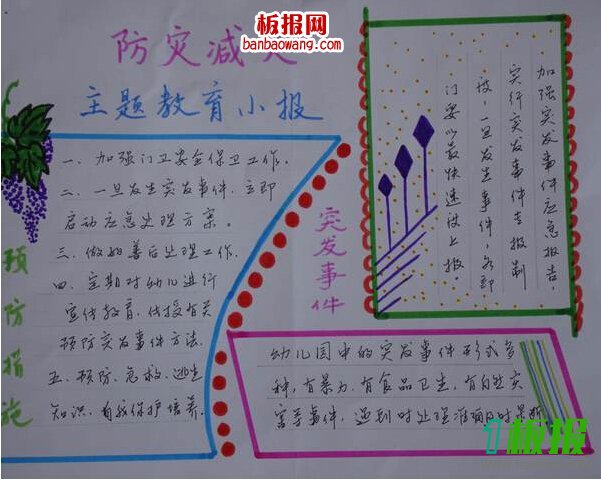 板报网
banbaowang.com
防灾减灾
主题教育小报
预防措施
一、加强门卫安全保卫工作。
二、一旦发生突发事件，立即
启动应急处理方案。
三、做好善后处理工作。
四、定期对幼儿进行
宣传教育，传授有关
预防突发事件方法。
五、预防、急救、逃生
知识、自我保护培养。
突发事件
加强突发事件应急报告，
实行突发事件专报制
度，一旦发生事件，各部
门要以最快速度上报。
幼儿园中的突发事件形式多
种，有暴力，有食品卫生，有自然灾
害等事件，遇到时处理准确及时果断
1板报